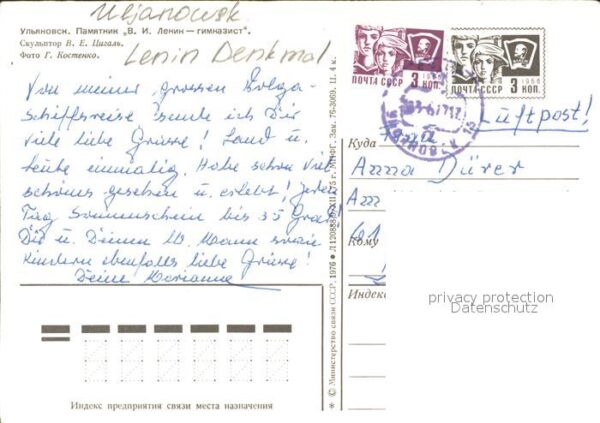 Uljanowsk
Ульяновск. Памятник „В. И. Ленин — гимназист".
Скульптор В. Е. Цигаль.
Фото Г. Костенко.
Lenin Denkmal
Von meiner grossen Wolga-
schiffsreise sende ich Dir
viele liebe Grüsse! Land u.
Leute einmalig. Habe schon viel
schönes gesehen u. erlebt! Jeden
Tag Sonnenschein bis 35 Grad!
Dir u. Deinem lb. Mann sowie
Kindern ebenfalls liebe Grüsse!
Deine Marianne
Индекс предприятия связи места назначения
© Министерство связи СССР, 1976
ПОЧТА СССР 3 КОП. 1966
ПОЧТА СССР 3 КОП. 1966
Luftpost!
Куда
Anna Dürer
Am
61
Кому
Индекс
privacy protection
Datenschutz